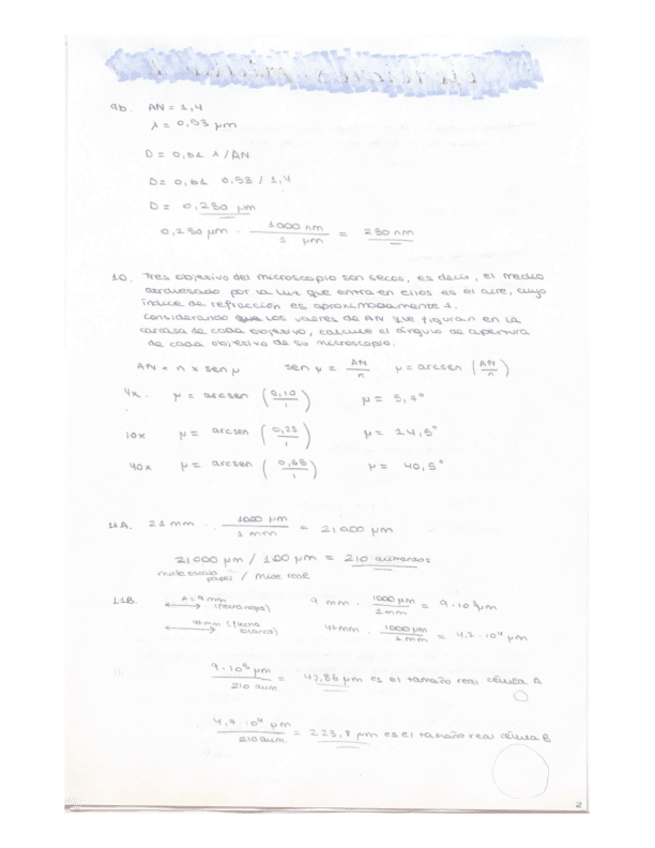 9b. AN = 1,4
λ = 0,53 μm
D = 0,61 λ/AN
D = 0,61 0,53 / 1,4
D = 0,230 μm
0,230 μm · 1000 nm / 1 μm = 230 nm
10. Tres objetivo del microscopio son secos, es decir, el medio
atravesado por la luz que entra en ellos es el aire, cuyo
índice de refracción es aproximadamente 1.
Considerando que los valores de AN que figuran en la
carcasa de cada objetivo, calcule el ángulo de apertura
de cada objetivo de su microscopio.
AN = n x sen μ sen μ = AN / n μ = arcsen (AN / n)
4x. μ = arcsen (0,10 / 1) μ = 5,7°
10x μ = arcsen (0,25 / 1) μ = 14,5°
40x μ = arcsen (0,65 / 1) μ = 40,5°
11A. 21 mm · 1000 μm / 1 mm = 21000 μm
21000 μm / 100 μm = 210 aumentos
mide escala papel / mide real
11B. A = 9 mm (flecha roja) 9 mm · 1000 μm / 1 mm = 9·10³ μm
(flecha blanca) 47 mm · 1000 μm / 1 mm = μm
9·10³ μm / 210 aum. = 42,86 μm es el tamaño real célula A
4,7·10⁴ μm / 210 aum. = 223,8 μm es el tamaño real célula B
2